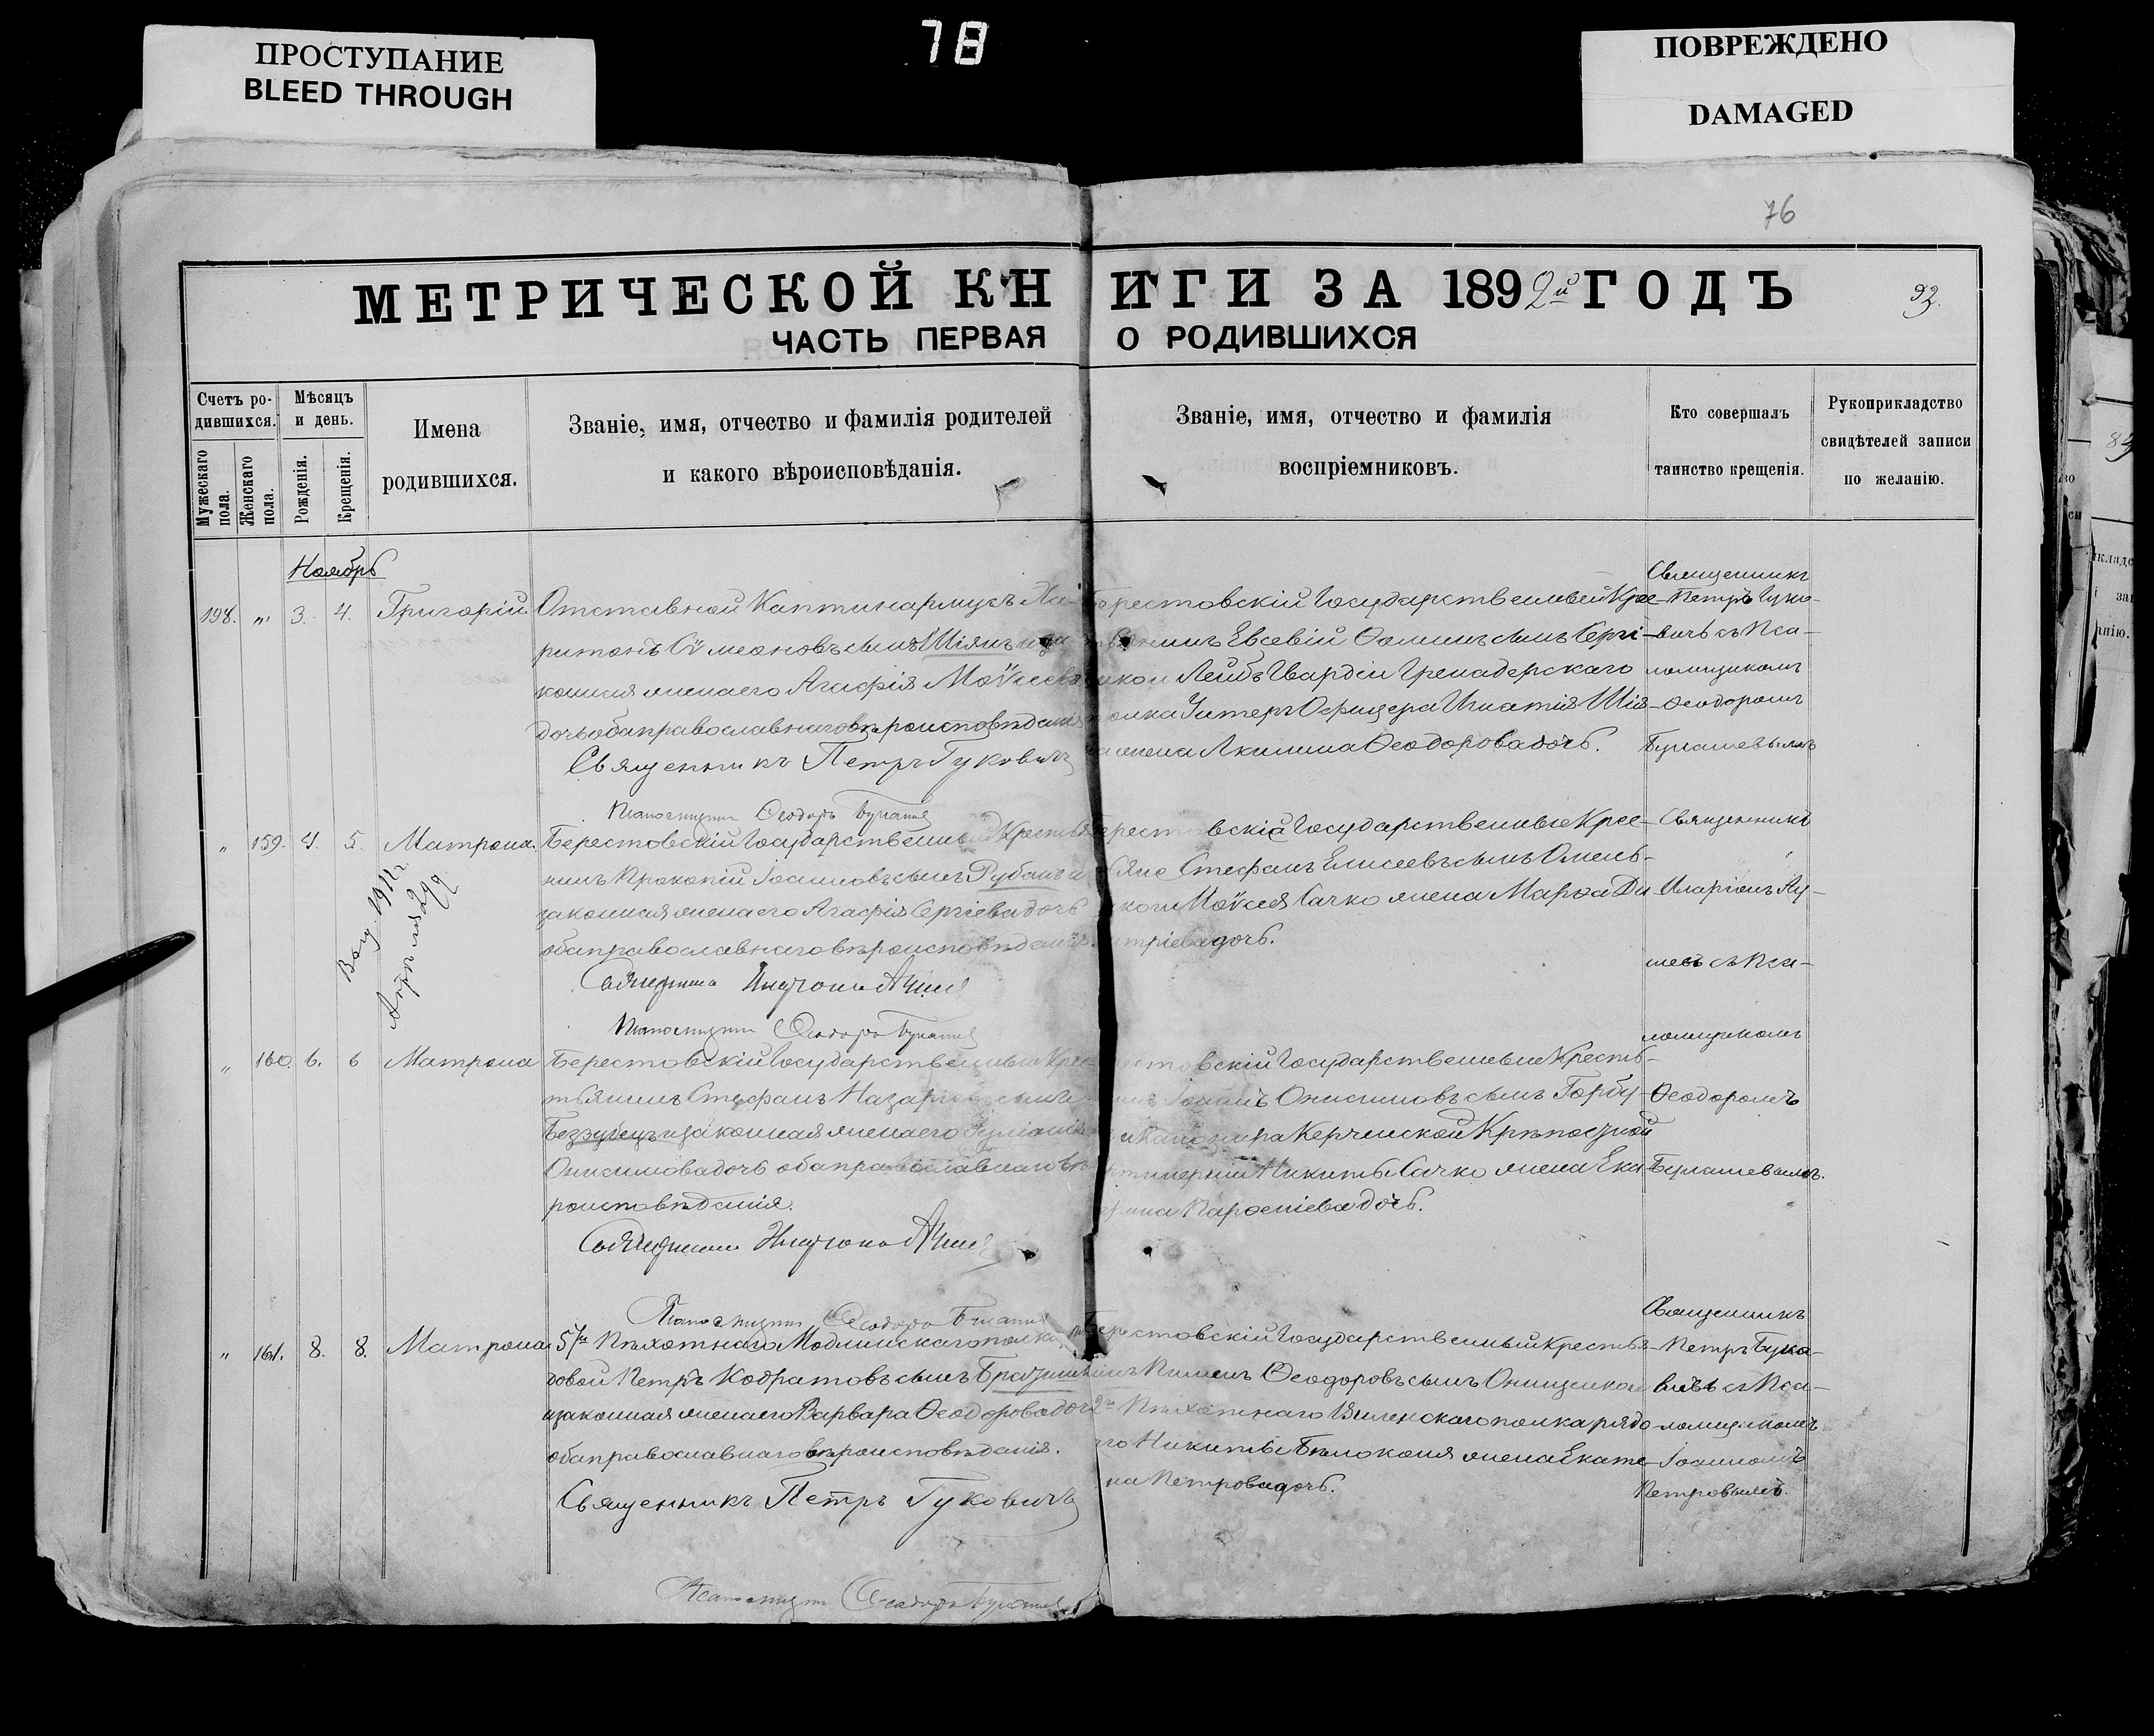 ПРОСТУПАНИЕ
BLEED THROUGH
78
ПОВРЕЖДЕНО
DAMAGED
76
МЕТРИЧЕСКОЙ КНИГИ ЗА 1892й ГОДЪ
92.
ЧАСТЬ ПЕРВАЯ О РОДИВШИХСЯ
Счетъ ро-
дившихся.
Мужескаго пола.
Женскаго пола.
Мѣсяцъ
и день.
Рожденія.
Крещенія.
Имена
родившихся.
Званіе, имя, отчество и фамилія родителей
и какого вѣроисповѣданія.
Званіе, имя, отчество и фамилія
воспріемниковъ.
Кто совершалъ
таинство крещенія.
Рукоприкладство
свидѣтелей записи
по желанію.
Ноябрь
198. „ 3. 4. Григорій.
Отставной Каптинармусъ Ха-
ритонъ Сѵмеоновъ сынъ Шіянъ и за
конная жена его Агафія Моѵсеева
дочь оба православнаго вѣроисповѣданія
Священникъ Петръ Гуковичъ
Берестовскій Государственный Крес
тьянинъ Евсевій Ѳоминъ сынъ Сергі-
Лейбъ Гвардіи Гренадерскаго
полка Унтеръ Офицера Игнатія Шія-
на жена Акилина Ѳеодорова дочь.
Священникъ
Петръ Гуко-
вичъ съ Пса-
ломщикомъ
Ѳеодоромъ
Булашевымъ
Псаломщикъ Ѳеодоръ
„ 159. 4. 5. Матрона.
Берестовскій Государственный Крестья
нинъ Прокопій Іоанновъ сынъ Рубанъ и
законная жена его Агафія Сергіева дочь
оба православнаго вѣроисповѣданія.
Берестовскіе Государственные Крес-
тьяне Стефанъ Елисеевъ сынъ Омель-
Моѵсея Сачко жена Марѳа Ди
митріева дочь.
Священникъ
Иларіонъ
съ Пса-
ломщикомъ
Ѳеодоромъ
Булашевымъ.
Псаломщикъ Ѳеодоръ
„ 160. 6. 6 Матрона
Берестовскій Государственный Крес-
тьянинъ Стефанъ Назаріевъ сынъ
Беззубецъ и законная жена его Іуліанія
Онисимова дочь оба православнаго вѣ
роисповѣданія.
Берестовскій Государственные Кресть-
Іоаннъ Онисимовъ сынъ Горбу-
и Канонира Керченской Крѣпостной
Артилеріи Никиты Сачко жена Ека
терина
Псаломщикъ Ѳеодоръ
„ 161. 8. 8. Матрона
57го Пѣхотнаго Модлинскаго полка ря
довой Петръ Кодратовъ сынъ
и законная жена его Варвара Ѳеодорова дочь
оба православнаго вѣроисповѣданія.
Священникъ Петръ Гуковичъ
Берестовскій Государственный крестья-
нинъ Пименъ Ѳеодоровъ сынъ Онищенко и
52го Пѣхотнаго Виленскаго полка рядо
го Никиты Бѣлоконя жена Екате
на Петрова дочь.
Священникъ
Петръ Гуко-
вичъ съ Пса-
ломщикомъ
Іоанномъ
Петровымъ.
Псаломщикъ Ѳеодоръ